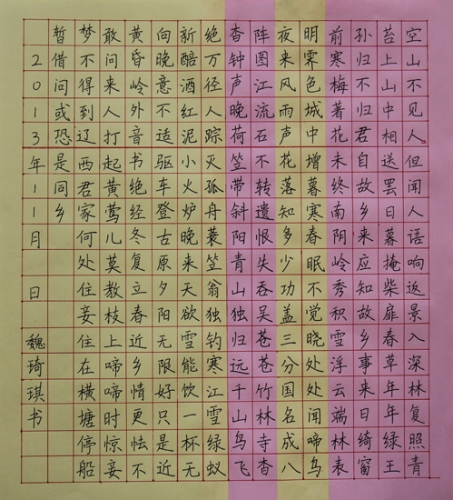 空山不见人但闻人语响返景入深林复照青
苔上山中相送罢日暮掩柴扉春草年年绿王
孙归不归君自故乡来应知故乡事来日绮窗
前寒梅著花未终南阴岭秀积雪浮云端林表
明霁色城中增暮寒春眠不觉晓处处闻啼鸟
夜来风雨声花落知多少功盖三分国名成八
阵图江流石不转遗恨失吞吴苍苍竹林寺杳
杳钟声晚荷笠带斜阳青山独归远千山鸟飞
绝万径人踪灭孤舟蓑笠翁独钓寒江雪绿蚁
新醅酒红泥小火炉晚来天欲雪能饮一杯无
向晚意不适驱车登古原夕阳无限好只是近
黄昏岭外音书绝经冬复立春近乡情更怯不
敢问来人打起黄莺儿莫教枝上啼啼时惊妾
梦不得到辽西君家何处住妾住在横塘停船
暂借问或恐是同乡
2013年11月 日 魏琦琪书